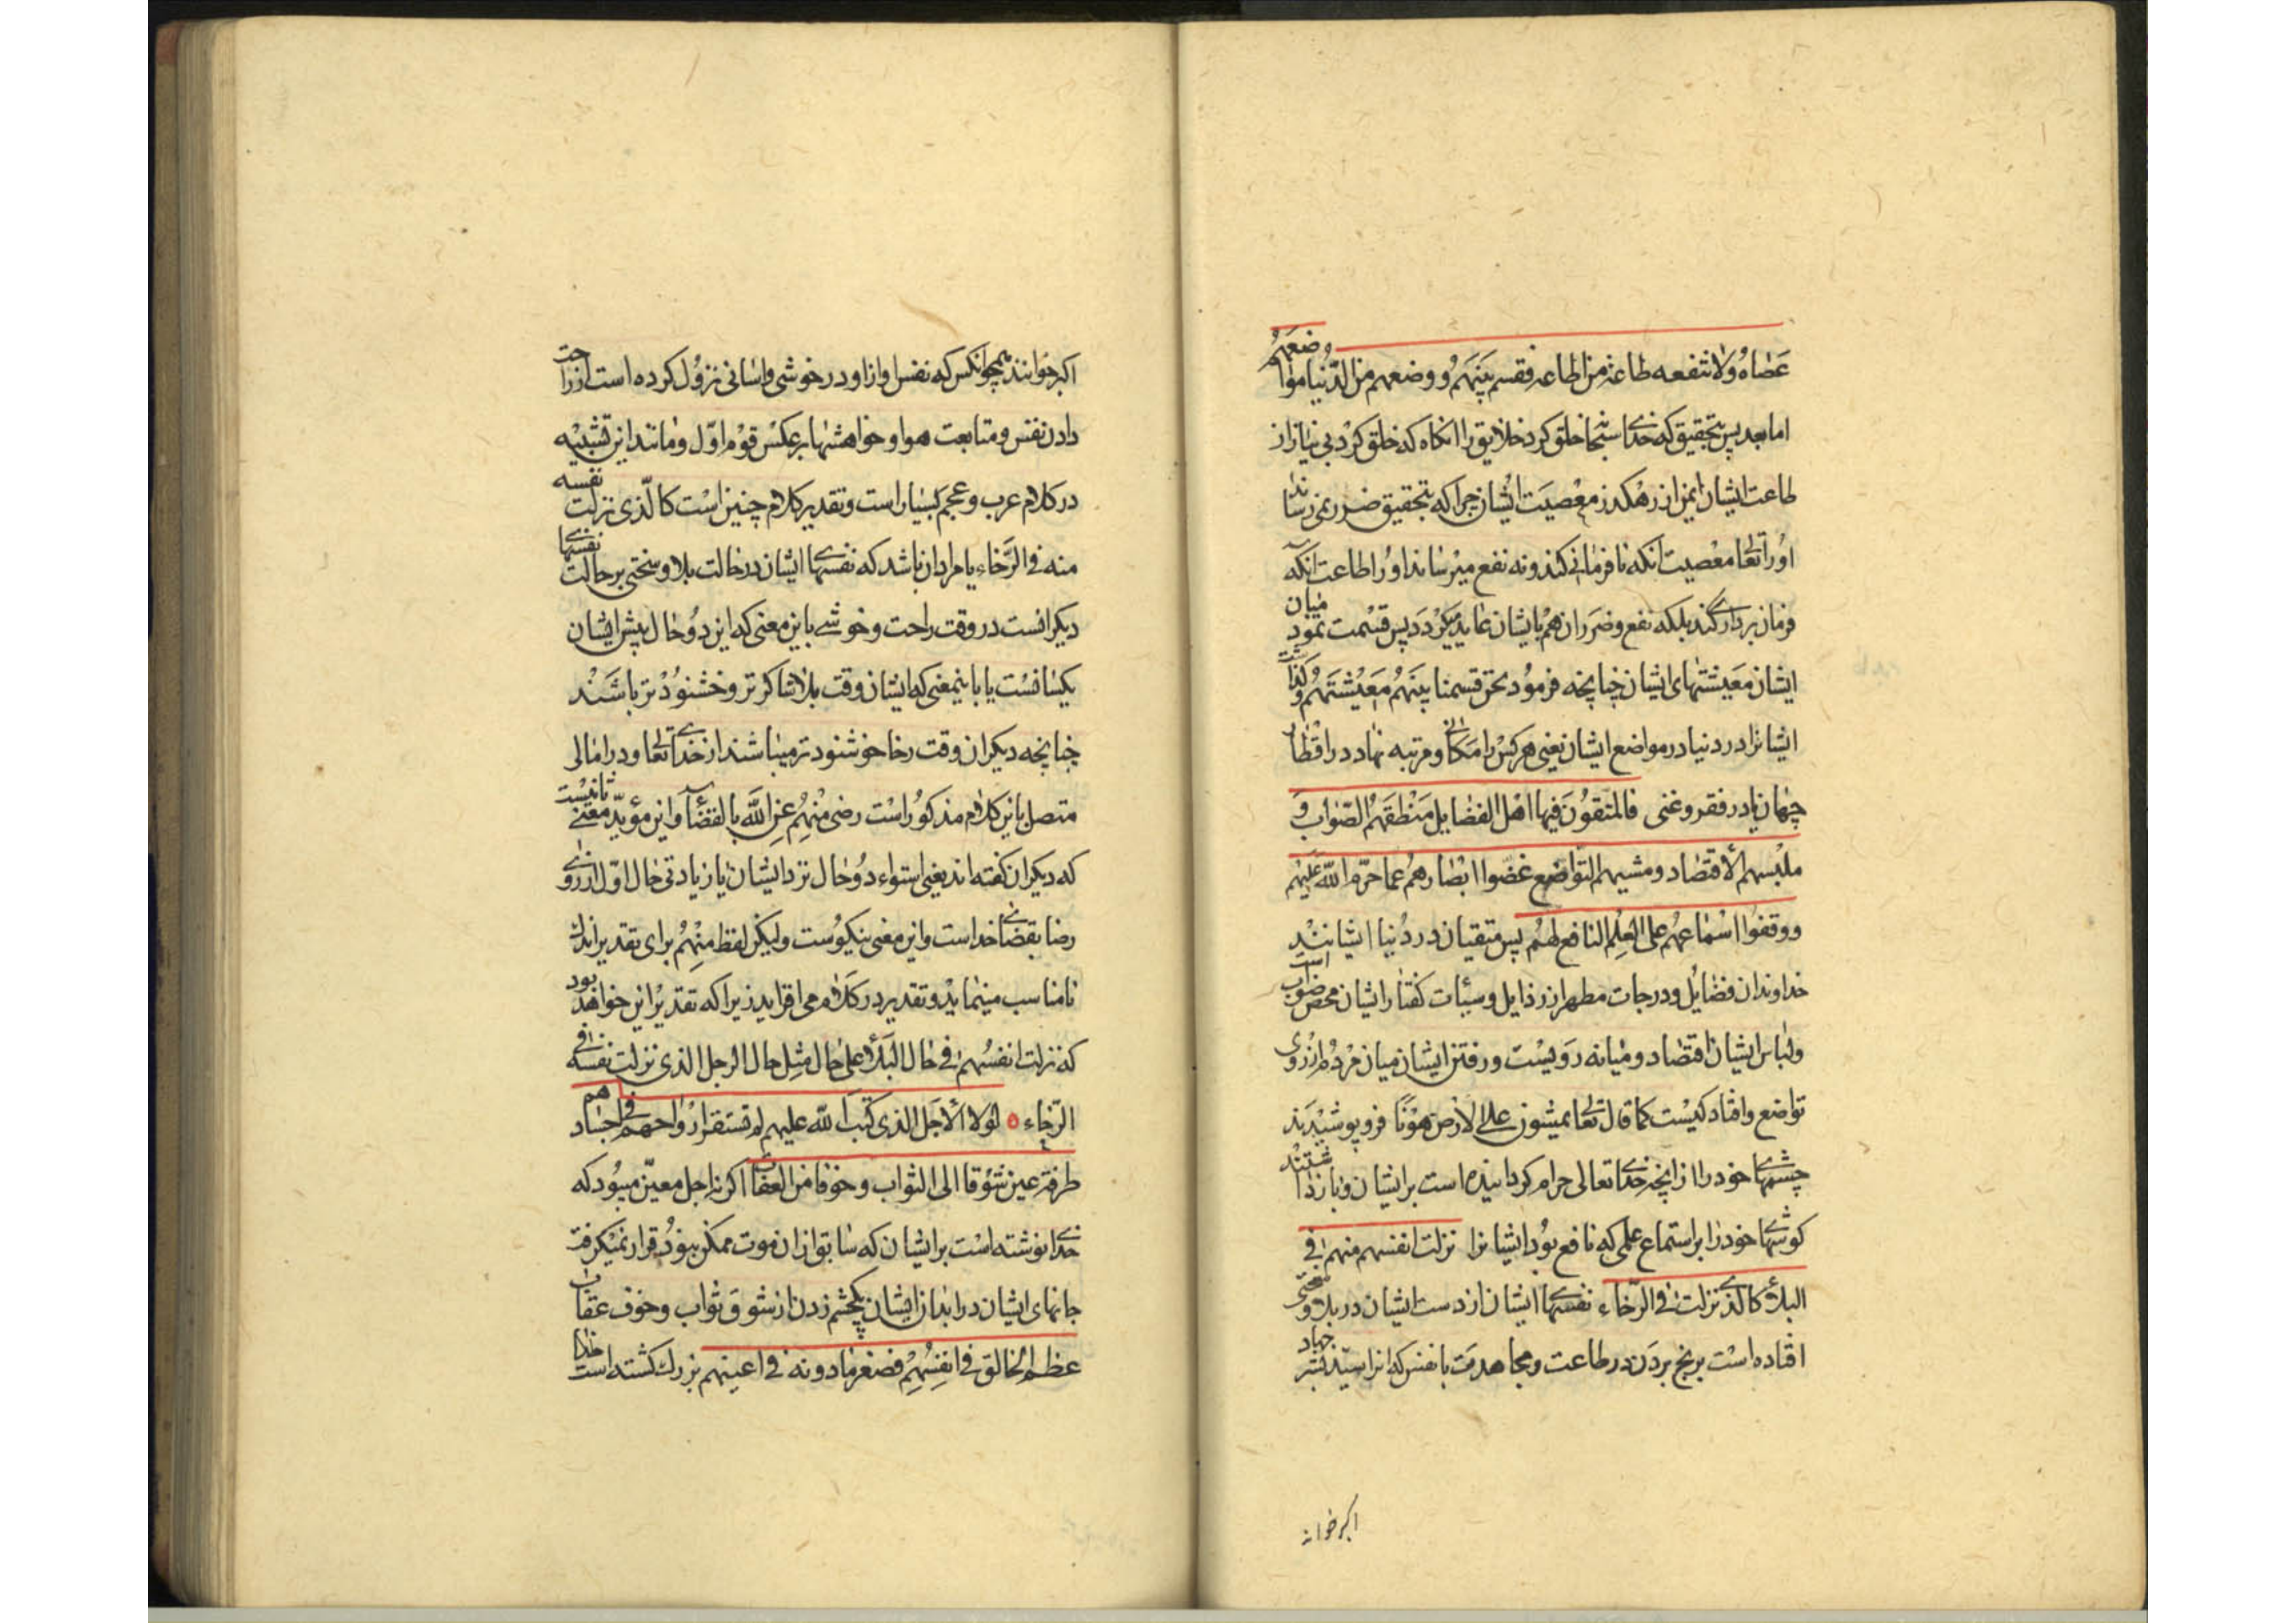 عَصٰاهُ وَلٰا تنفعه طاعة من اطاعه فقسم بَيْنَهُمْ ووضعهم من الدُّنيا مواضعهم
اما بعد پس بتحقیق که خدای سبحا خلق کرد خلایق را انگاه که خلق کرد بی نیاز از
طاعت ایشان ایمن از رهکدر معْصیَت ایْشان چرا که بتحقیق ضرر نمی رساند
اوُرا تعالی معْصیت انکه نافرمانی کند و نه نفع میْرساند اوُرا طاعت انکه
فرمان برداری کند بلکه نفع و ضَرَر ان هم بایشان عاید میکرْدَد پس قسْمت نمود میٰان
ایشان مَعَیشتهای ایشان چنانچه فرموُد نحن قسمنا بَینَهُمْ مَعَیْشَتَهُمْ و کذاشت
ایشانرا در دنیا در مواضع ایشان یعنی هر کسْ را مَکانی و مرتبه نهاد در اقْطار
جهان یا در فقر و غنی فالمتقوُنَ فیها اهْل الفضایل مَنْطقَهُم الصّواب وَ
ملبْسهم الاقتصاد ومشیهم التّواضع غضّوا ابْصارهُم عما حرّم اللّه عَلَیْهم
ووقفوا اسْماعهُم علی العِلم النافع لهُم پس متقیان در دُنیا ایشانند
خداوندان فضٰایُل و درجات مطهر از رذایل و سیئات کفتار ایشان محض صوابست
و لباس ایشان اقتصاد و میٰانه رَویسْت و رفتن ایشان میان مرْدُم از رُوی
تواضع و افتادکیسْت کما قال تعالی یمشون علی الارض هوْنًا فرو پوشیْدَند
چشمهای خود را از انچه خدای تعالی حرام کردانیده است بر ایشان و بازداشتند
کوشهای خود را بر استماع علمی که نافع بوُد ایشانرا نزلت انفسهم منهم فی
البلاء کالذی نزلت فی الرّخاء نفسهای ایشان از دست ایشان در بلا و سختی
افتاده اسْت برنج بردَن در طاعت و مجاهدت با نفس که انرا سیّد بشر جهاد
اکبر خواند
اکبر خوانند همچو آنکس که نفس او از او در خوشی و اسٰانی نزوُل کرده است از راحت
دادن نفس و متابعت هوا و خواهشها بر عکسْ قوْم اوّل و مانند این تشْبیْه
در کلام عرب و عجم بسْیار است و تقدیر کلام چنین اسْت کالّذی نزلت نفسه
منه فی الرَّخاء یا مراد ان باشد که نفسهای ایشان در حالت بلا و سختی بر حالت نفسهای
دیکرانست در وقت راحت و خوشی باین معنی که این دوُ حٰال پیش ایشان
یکسانسْت یا باینمعنی که ایشان وقت بلا شاکرتر و خشنوُدْ تر باشَنْد
چنانچه دیکران وقت رخا خوشنود تر میباشند از خدای تعالی و در امٰالی
متصل باین کلام مذکوُر اسْت رضی منْهِمُ عنِ اللَّه بالقضآء و این مؤیّد معْنی ثانیسْت
که دیکران کفته اند یعنی استواء دوُ حٰال نزد ایشان یا زیادتی حٰال اوّل از روی
رضا بقضٰای خداست و این معنی نیکوُست ولیکن لفظ مِنْهِمُ برای تقدیر اندک
نامناسب مینماید و تقدیر در کَلام می افزاید زیرا که تقدیْر این خواهد بود
که نزلت انفسُهم فی حٰال البَلآء علی حٰال مثِل حٰال الرجل الذی نزلت نفسه فی
الرّخاء ۵ لولا الاجَل الذی کتَب اللّه علیهم لم تستقر ارواحهم فی اجسادهم
طرفة عین شوْقا الی الثواب وخوْفا من العقاب اکر نه اجل معیّن میبوُد که
خدای نوشته اسْت بر ایشان که سٰابق از ان موت ممکن نبوُد قرار نمیْکرفت
جانهای ایشان در ابدان ایْشان یکچشم زدن از شوق ثواب و خوف عقاب
عظم الخالق فی انفِسُهِمْ فصغر مٰا دونه فی اعینهم بزرک کشته است خدا